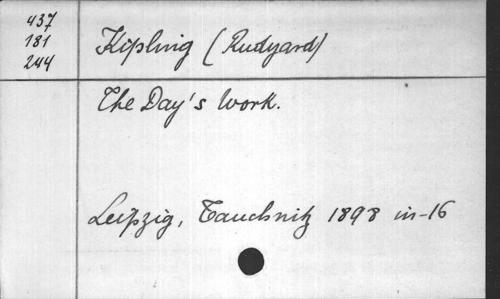 437
181
244
Kipling (Rudyard)
The Day's Work.
Leipzig, Tauchnitz 1898 in-16